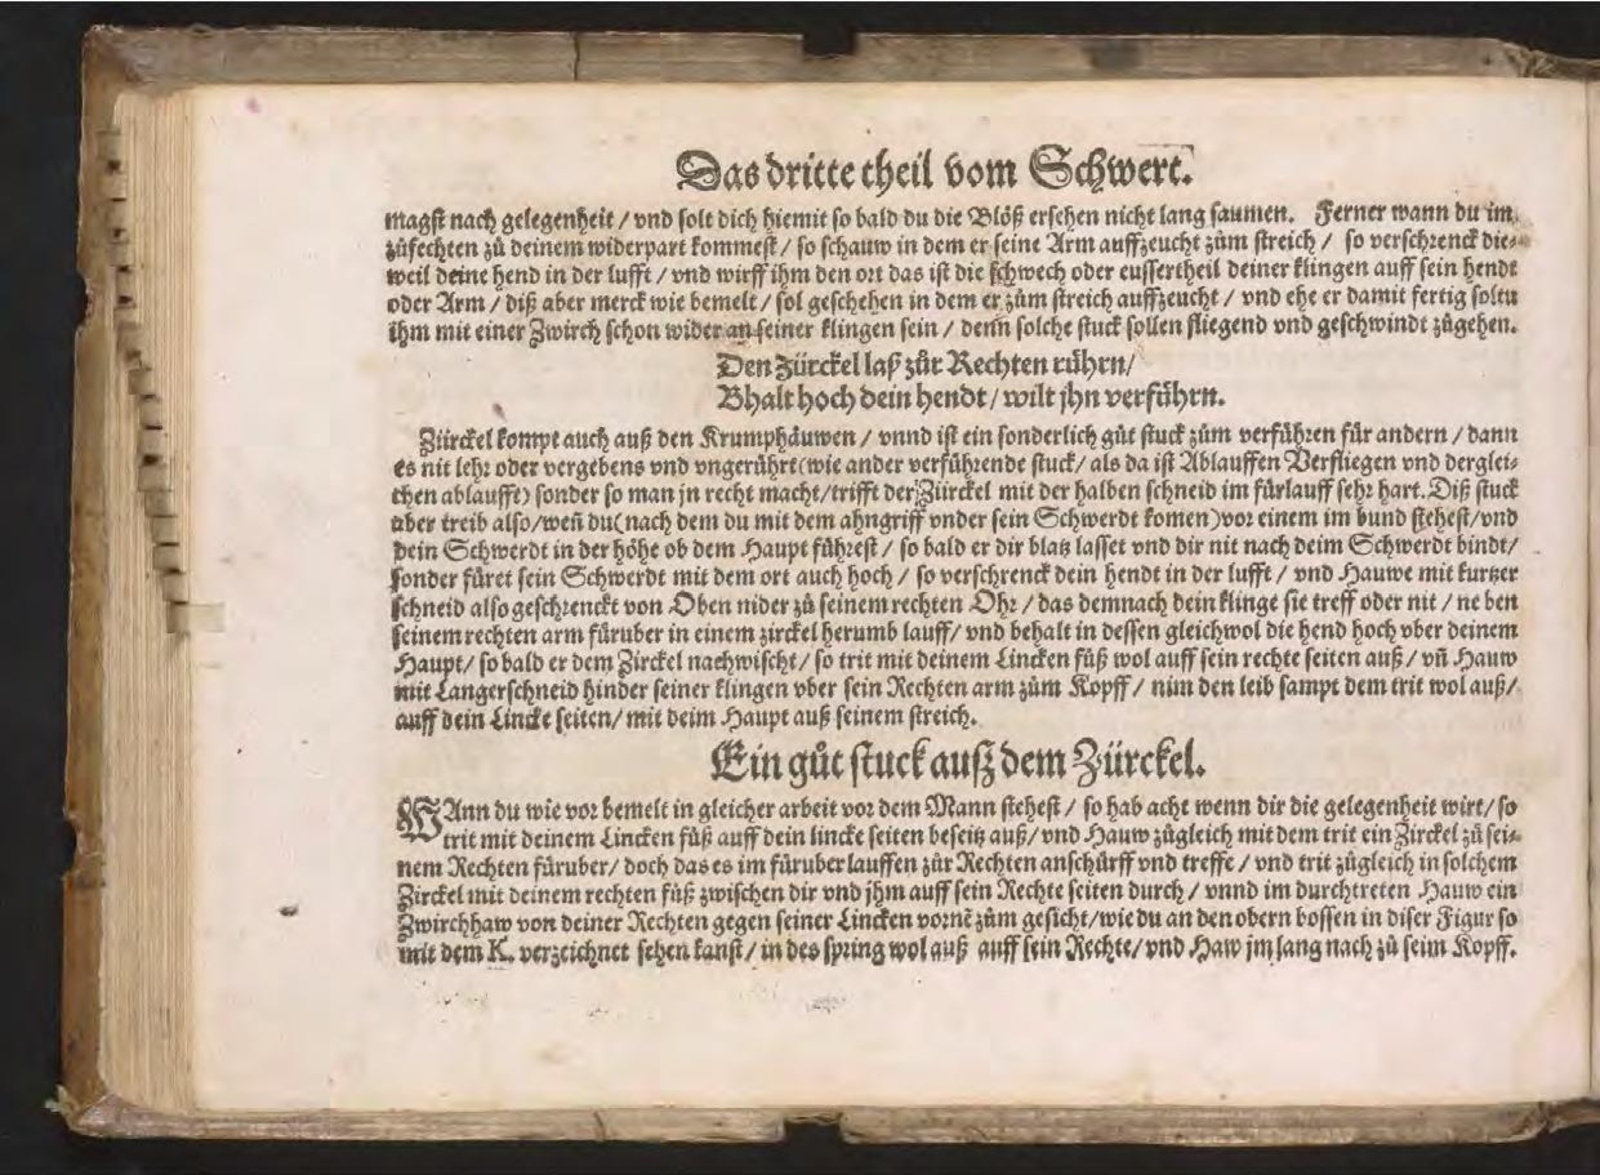 Das dritte theil vom Schwert.
magst nach gelegenheit / vnd solt dich hiemit so bald du die Blöß ersehen nicht lang saumen. Ferner wann du im
zůfechten zů deinem widerpart kommest / so schauw in dem er seine Arm auffzeucht zům streich / so verschrenck die-
weil deine hend in der lufft / vnd wirff ihm den ort das ist die schwech oder eussertheil deiner klingen auff sein hendt
oder Arm / diß aber merck wie bemelt / sol geschehen in dem er zům streich auffzeucht / vnd ehe er damit fertig soltu
ihm mit einer Zwirch schon wider an seiner klingen sein / denn solche stuck sollen fliegend vnd geschwindt zůgehen.
Den Zürckel laß zůr Rechten rührn/
Bhalt hoch dein hendt / wilt jhn verführn.
Zürckel kompt auch auß den Krumphäuwen / vnnd ist ein sonderlich gůt stuck zům verführen für andern / dann
es nit lehr oder vergebens vnd vngerührt (wie ander verführende stuck / als da ist Ablauffen Verfliegen vnd derglei-
chen ablaufft) sonder so man jn recht macht / trifft der Zürckel mit der halben schneid im fürlauff sehr hart. Diß stuck
aber treib also / weñ du (nach dem du mit dem ahngriff vnder sein Schwerdt komen) vor einem im bund stehest / vnd
dein Schwerdt in der höhe ob dem Haupt führest / so bald er dir blatz lasset vnd dir nit nach deim Schwerdt bindt /
sonder füret sein Schwerdt mit dem ort auch hoch / so verschrenck dein hendt in der lufft / vnd Hauwe mit kurtzer
schneid also geschrenckt von Oben nider zů seinem rechten Ohr / das demnach dein klinge sie treff oder nit / ne ben
seinem rechten arm füruber in einem zirckel herumb lauff / vnd behalt in dessen gleichwol die hend hoch vber deinem
Haupt / so bald er dem Zirckel nachwischt / so trit mit deinem Lincken fůß wol auff sein rechte seiten auß / vñ Hauw
mit Langerschneid hinder seiner klingen vber sein Rechten arm zům Kopff / nim den leib sampt dem trit wol auß /
auff dein Lincke seiten / mit deim Haupt auß seinem streich.
Ein gůt stuck aufz dem Zürckel.
WAnn du wie vor bemelt in gleicher arbeit vor dem Mann stehest / so hab acht wenn dir die gelegenheit wirt / so
trit mit deinem Lincken fůß auff dein lincke seiten beseitz auß / vnd Hauw zůgleich mit dem trit ein Zirckel zů sei-
nem Rechten füruber / doch das es im füruber lauffen zůr Rechten anschürff vnd treffe / vnd trit zůgleich in solchem
Zirckel mit deinem rechten fůß zwischen dir vnd jhm auff sein Rechte seiten durch / vnnd im durchtreten Hauw ein
Zwirchhaw von deiner Rechten gegen seiner Lincken vornẽ zům gesicht / wie du an den obern bossen in diser Figur so
mit dem K. verzeichnet sehen kanst / in des spring wol auß auff sein Rechte / vnd Haw jm lang nach zů seim Kopff.